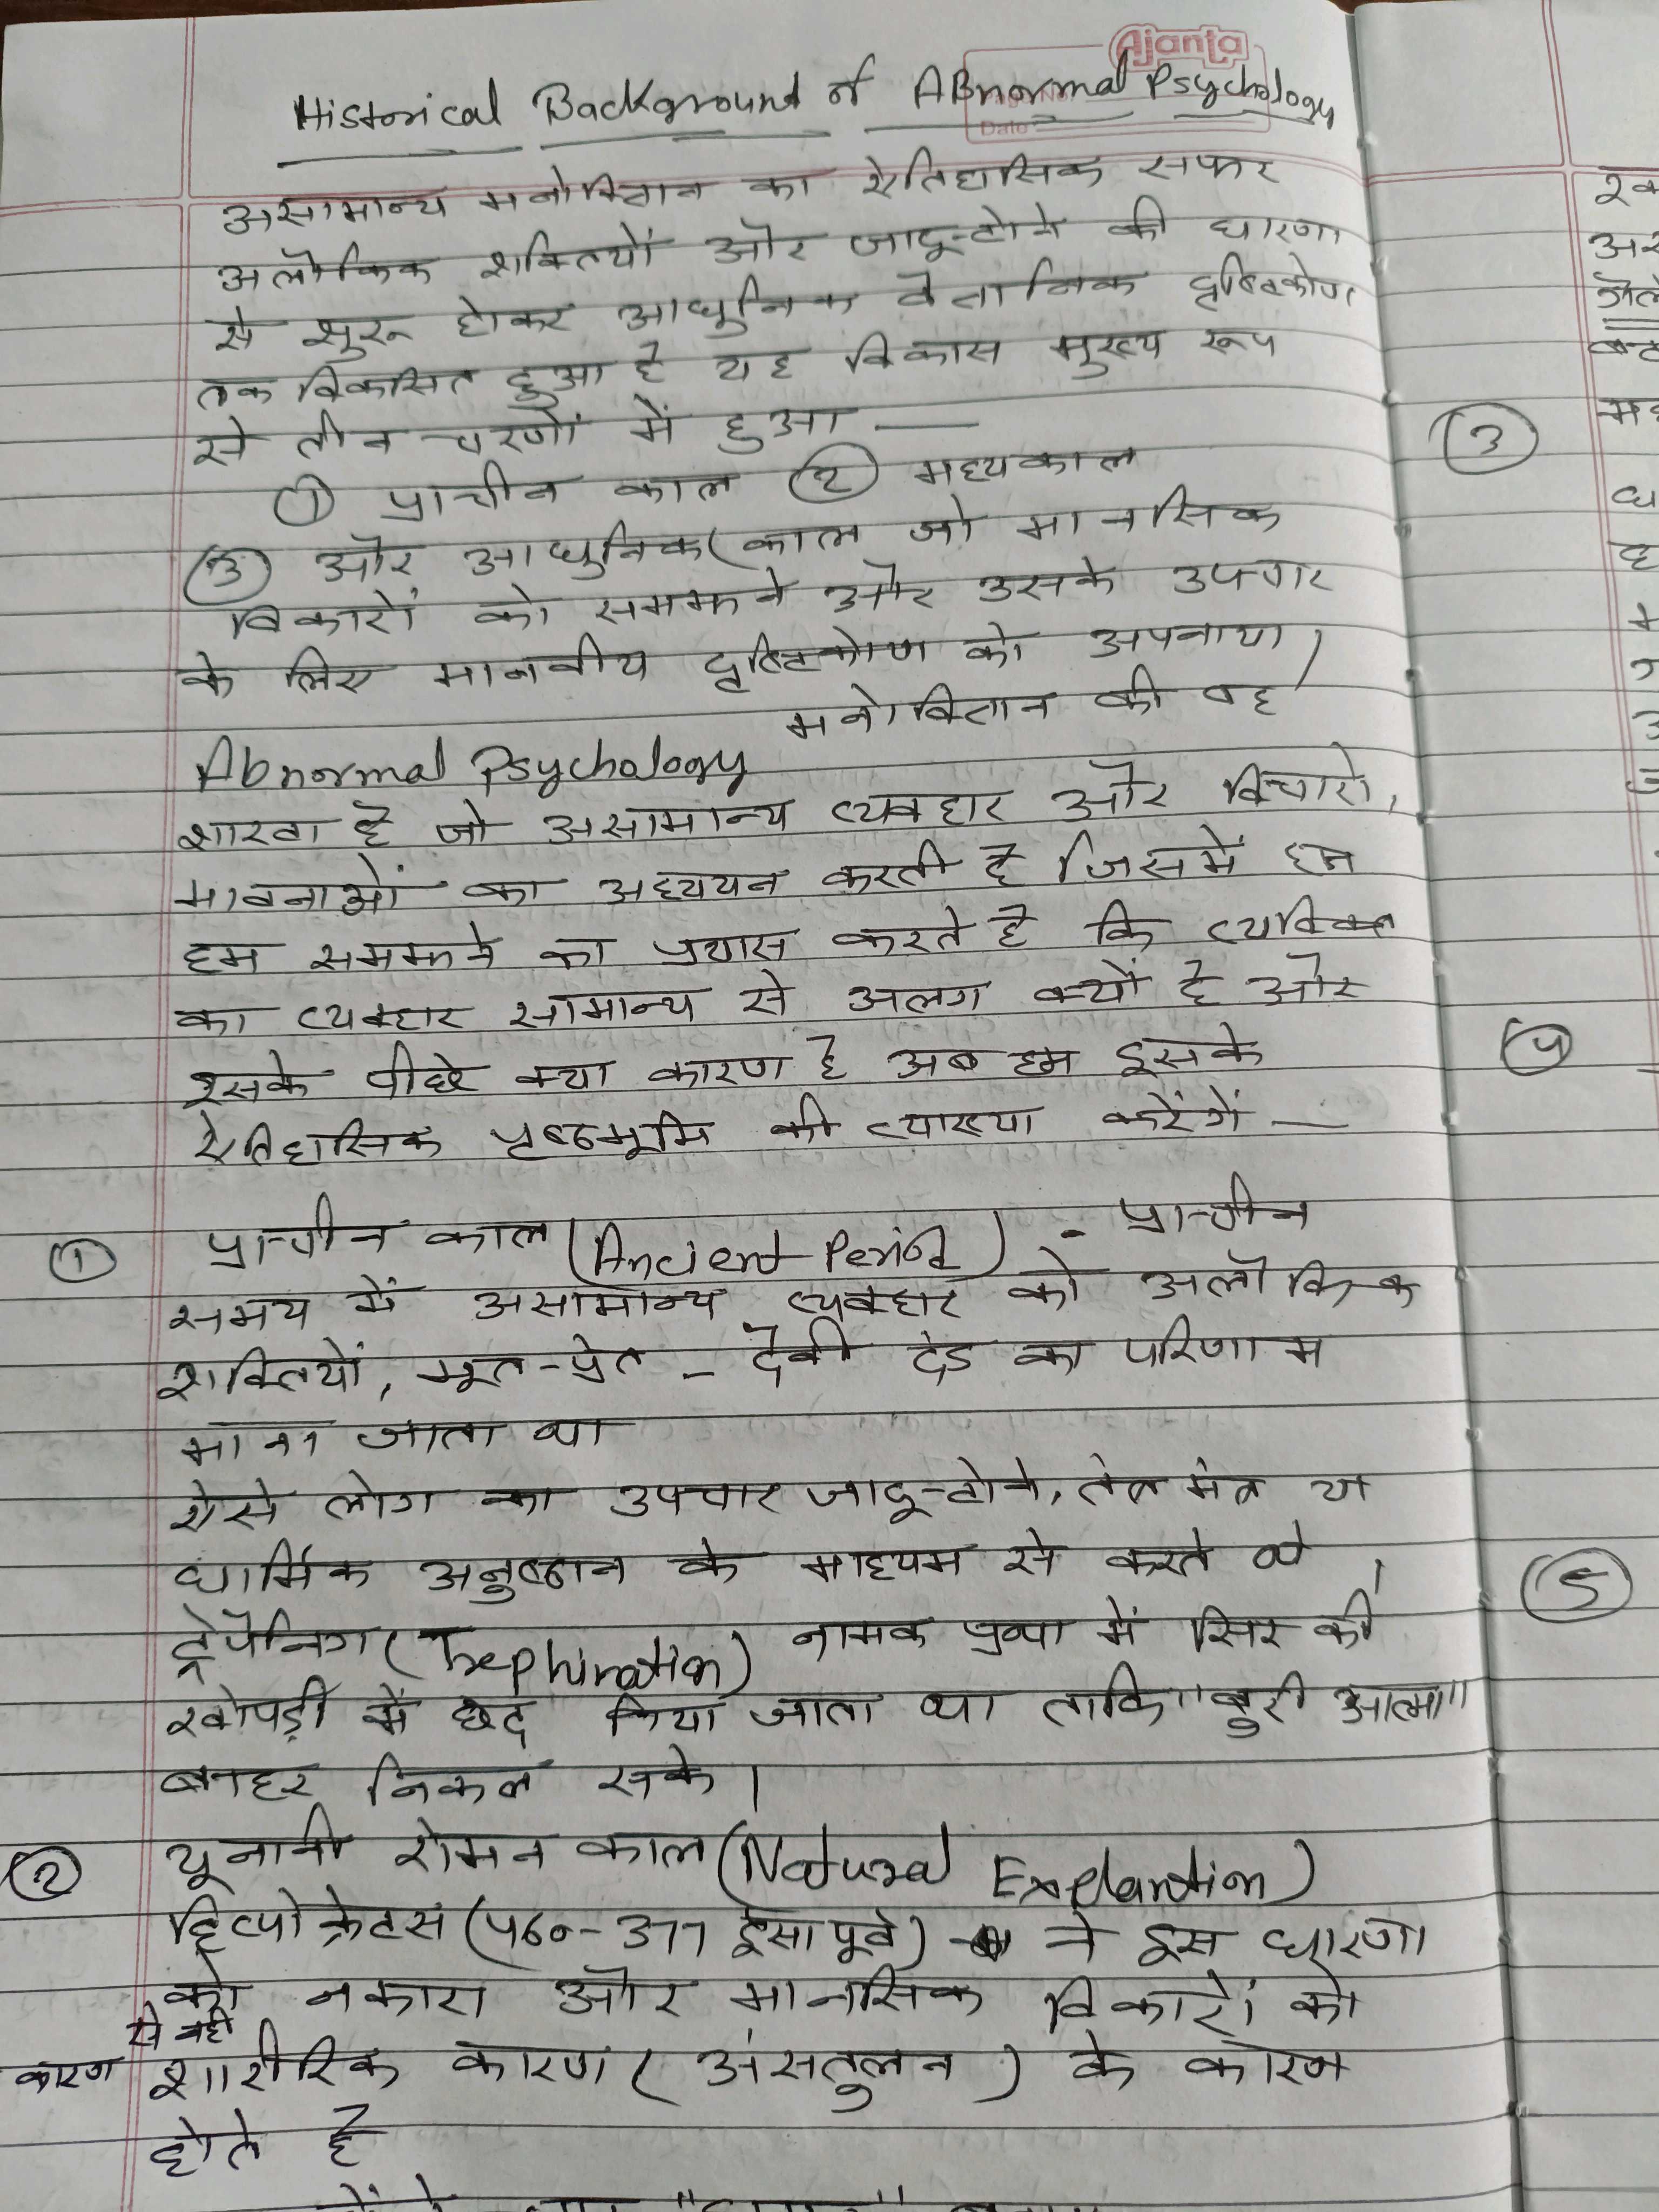 Ajanta
Date
Historical Background of ABnormal Psychology
असामान्य मनोविज्ञान का ऐतिहासिक सफर
अलौकिक शक्तियों और जादू-टोने की धारणा
से शुरू होकर आधुनिक वैज्ञानिक दृष्टिकोण
तक विकसित हुआ है यह विकास मुख्य रूप
से तीन चरणों में हुआ —
① प्राचीन काल ② मध्यकाल
③ और आधुनिक काल जो मानसिक
विकारों को समझने और उसके उपचार
के लिए मानवीय दृष्टिकोण को अपनाया।
Abnormal Psychology मनोविज्ञान की वह
शाखा है जो असामान्य व्यवहार और विचारों,
भावनाओं का अध्ययन करती है जिसमें हम
हम समझने का प्रयास करते है कि व्यक्ति
का व्यवहार सामान्य से अलग क्यों है और
इसके पीछे क्या कारण है अब हम इसके
ऐतिहासिक पृष्ठभूमि की व्याख्या करेंगें —
① प्राचीन काल (Ancient Period) - प्राचीन
समय में असामान्य व्यवहार को अलौकिक
शक्तियों, भूत-प्रेत - दैवी दंड का परिणाम
माना जाता था
ऐसे लोग का उपचार जादू-टोने, तंत्र मंत्र या
धार्मिक अनुष्ठान के माध्यम से करते थे।
ट्रेपैनिंग (Trephination) नामक प्रथा में सिर की
खोपड़ी में छेद किया जाता था ताकि "बुरी आत्मा"
बाहर निकल सके।
② यूनानी रोमन काल (Natural Explantion)
हिप्पोक्रेटस (460-377 ईसा पूर्व) ने इस धारणा
को नकारा और मानसिक विकारों को
से नही
कारण शारीरिक कारण (अंसतुलन) के कारण
होते है
③
④
⑤